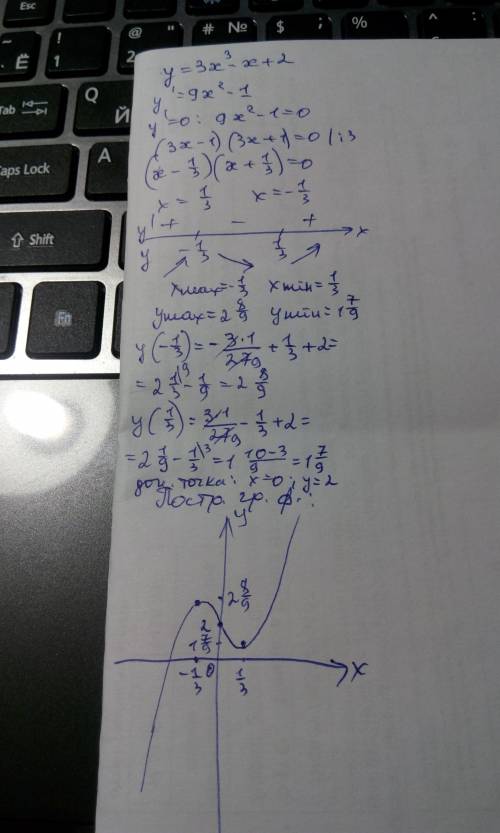 Esc
Ё
!
1
@
2
"
#
№
$
%
^
&
Tab
Q
Й
Caps Lock
A
Shift
Fn
y = 3x³ - x + 2
y' = 9x² - 1
y' = 0: 9x² - 1 = 0
(3x - 1)(3x + 1) = 0 | : 3
(x - 1/3)(x + 1/3) = 0
x = 1/3 x = -1/3
y' + - +
y -1/3 1/3 x
xmax = -1/3 xmin = 1/3
ymax = 2 8/9 ymin = 1 7/9
y(-1/3) = - 3·1/27 9 + 1/3 + 2 =
= 2 1/3 - 1/9 = 2 8/9
y(1/3) = 3·1/27 9 - 1/3 + 2 =
= 2 1/9 - 1/3 \3 = 1 10-3/9 = 1 7/9
доп. точка: x = 0; y = 2
Постр. гр. ф.:
y
2 8/9
2
1 7/9
-1/3 0 1/3 x